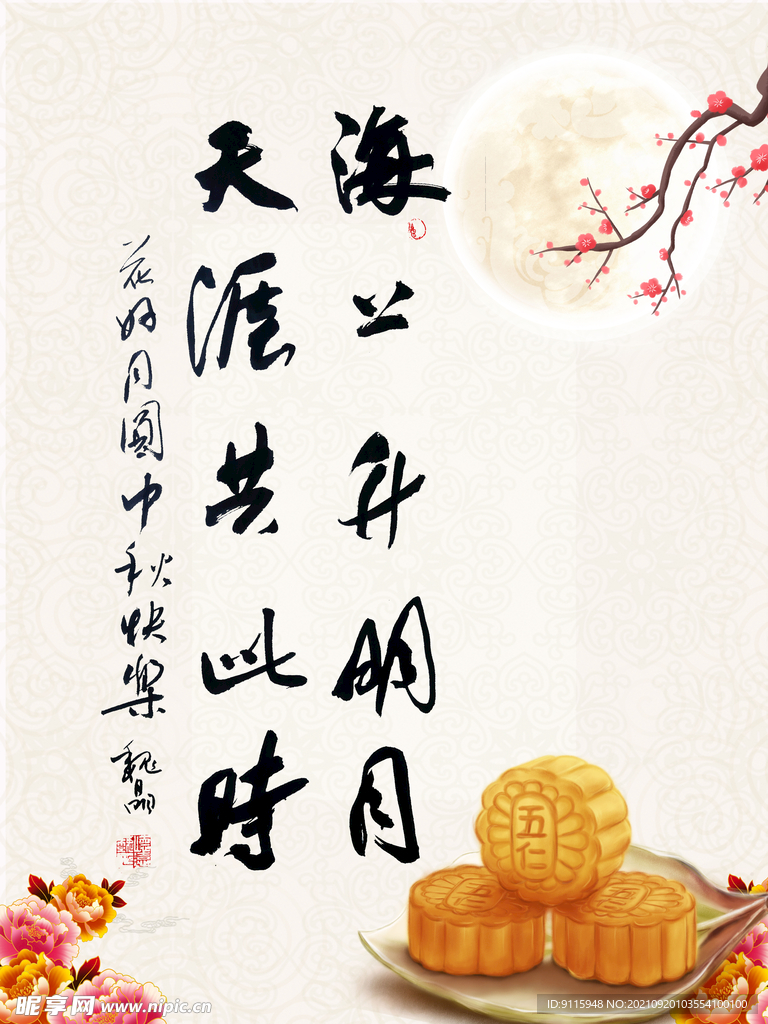 海上升明月
天涯共此時
花好月圓中秋快樂 魏晶
五仁
昵享网 www.nipic.cn
ID:9115948 NO:20210920103554100100